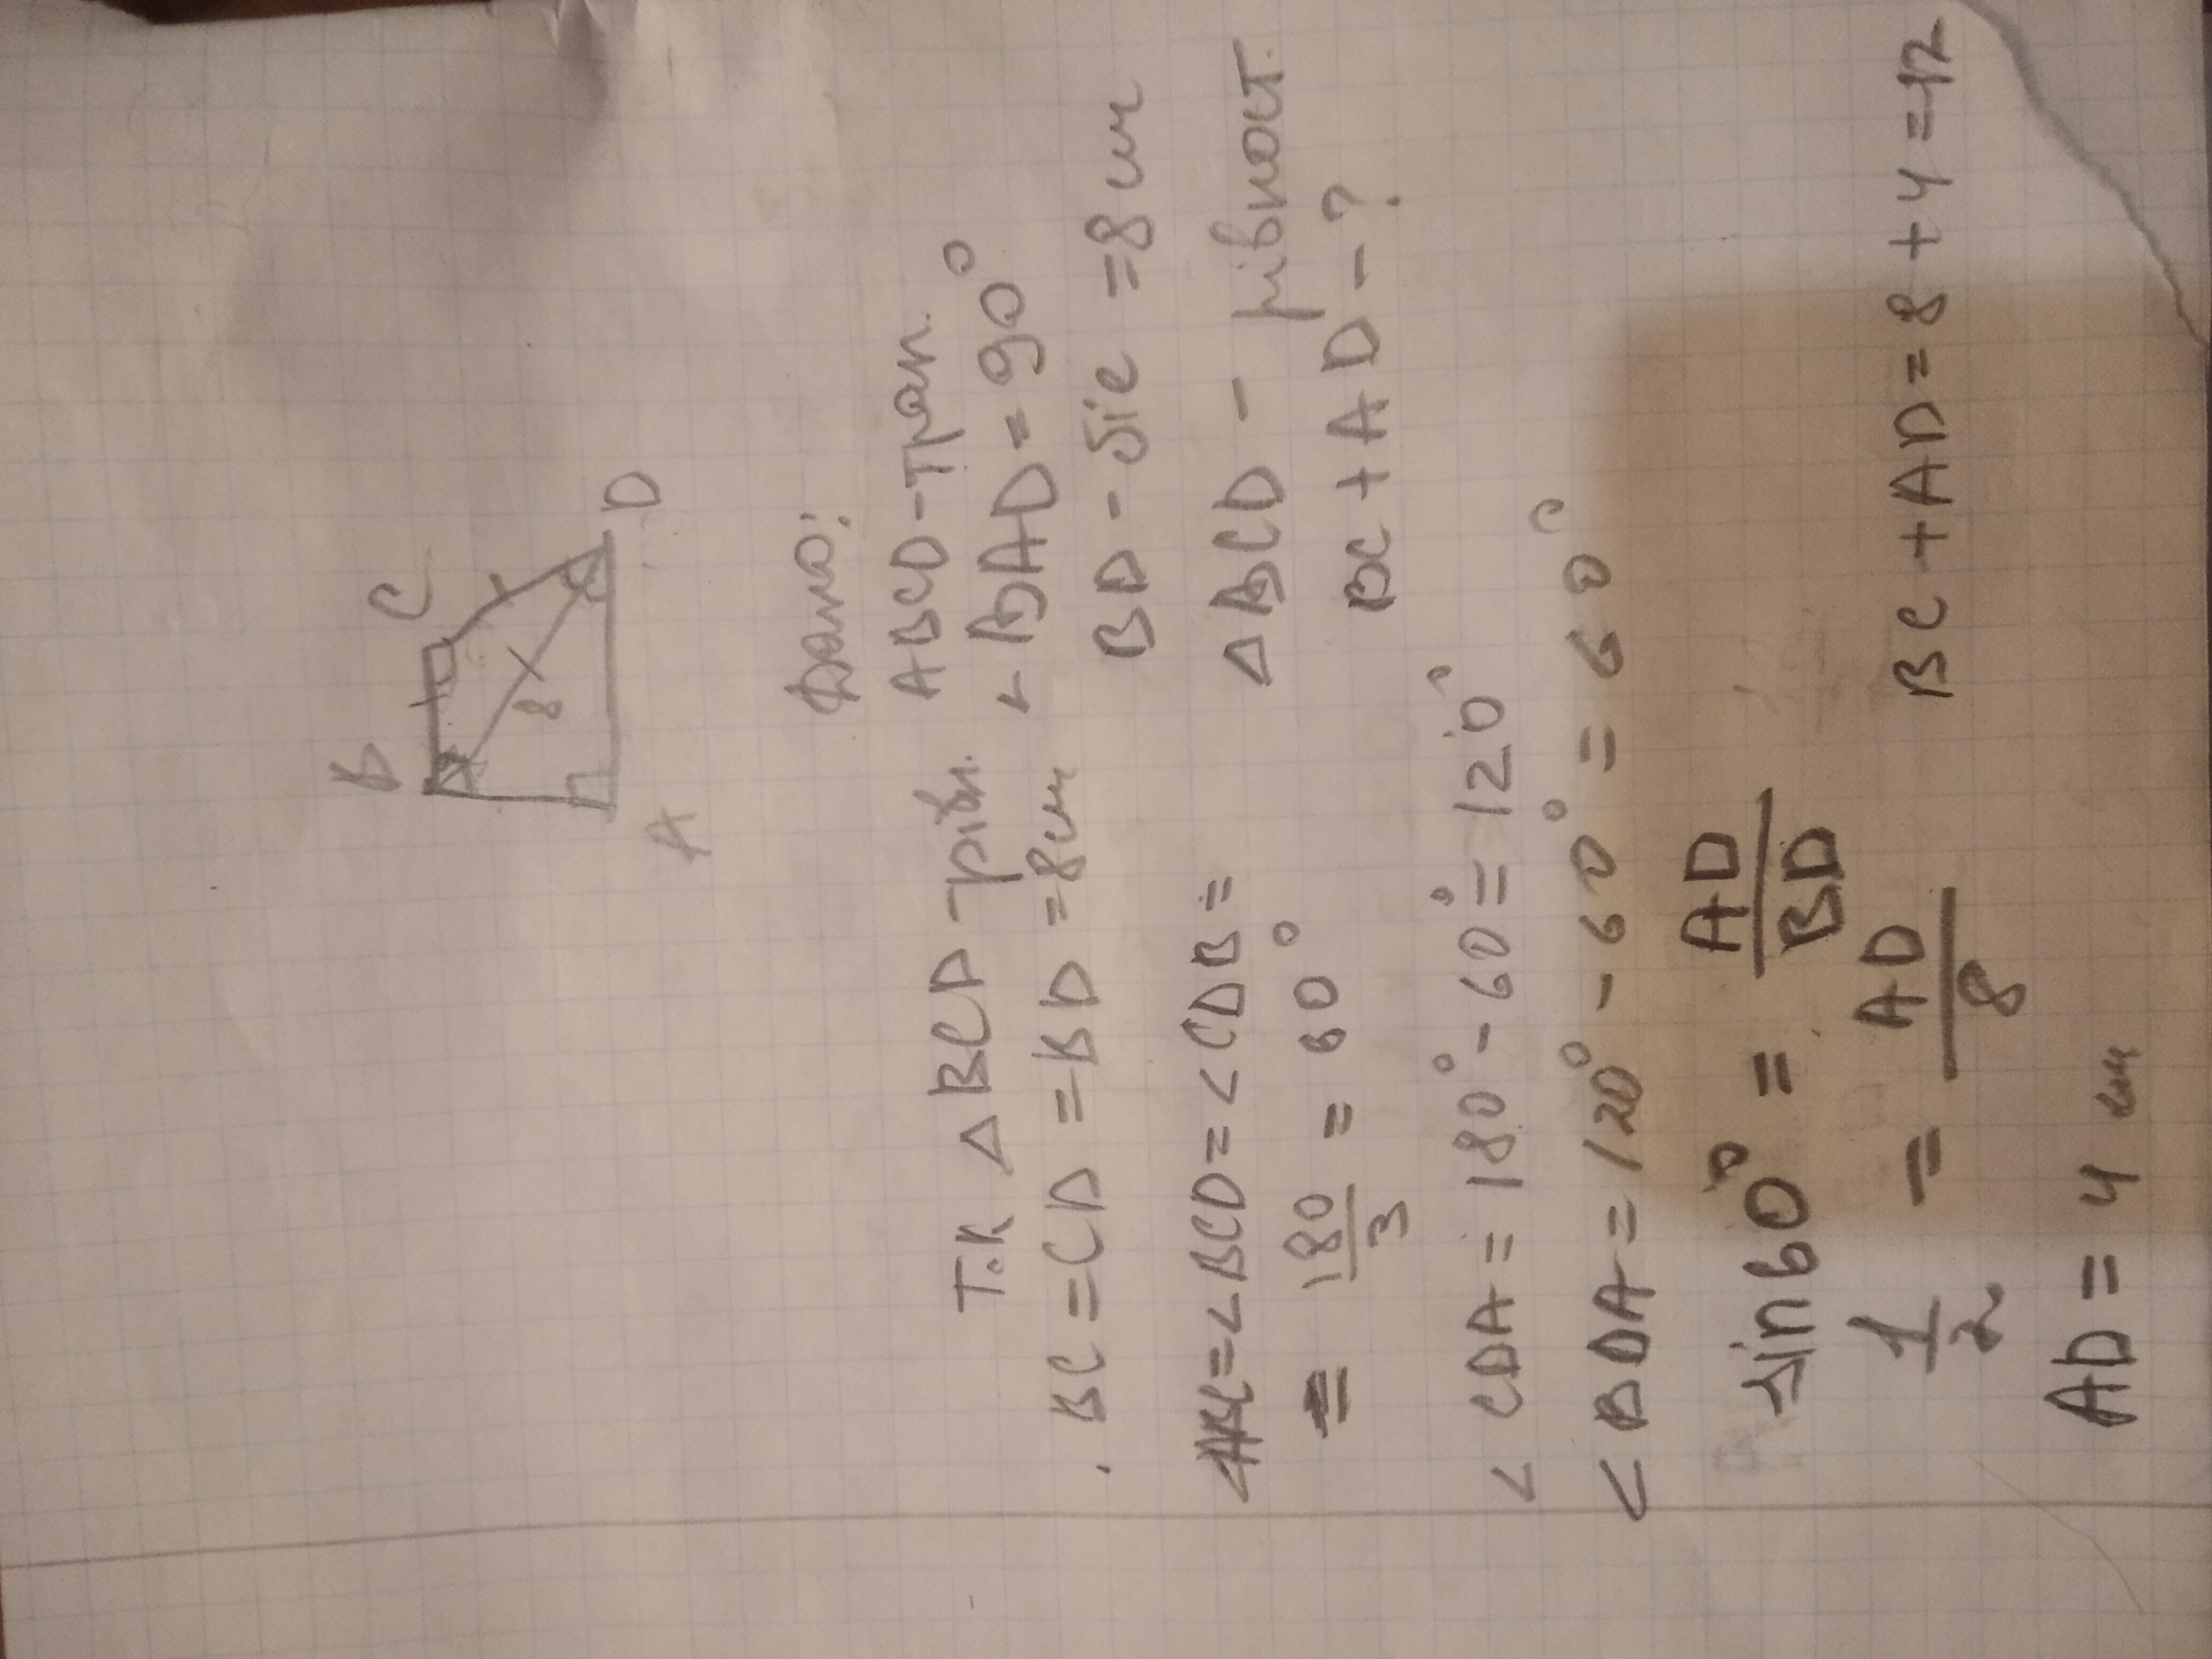 B C
8
A D
Дано:
ABCD-трап.
∠BAD=90°
BD-біс =8см
△BCD - рівност.
BC+AD-?
Т.к △BCD-рівн.
BC=CD=BD=8см
∠BCD=∠CDB=
= 180/3 = 60°
∠CDA=180°-60°=120°
∠BDA=120°-60°=60°
sin60° = AD/BD
1/2 = AD/8
AD=4см
BC+AD=8+4=12